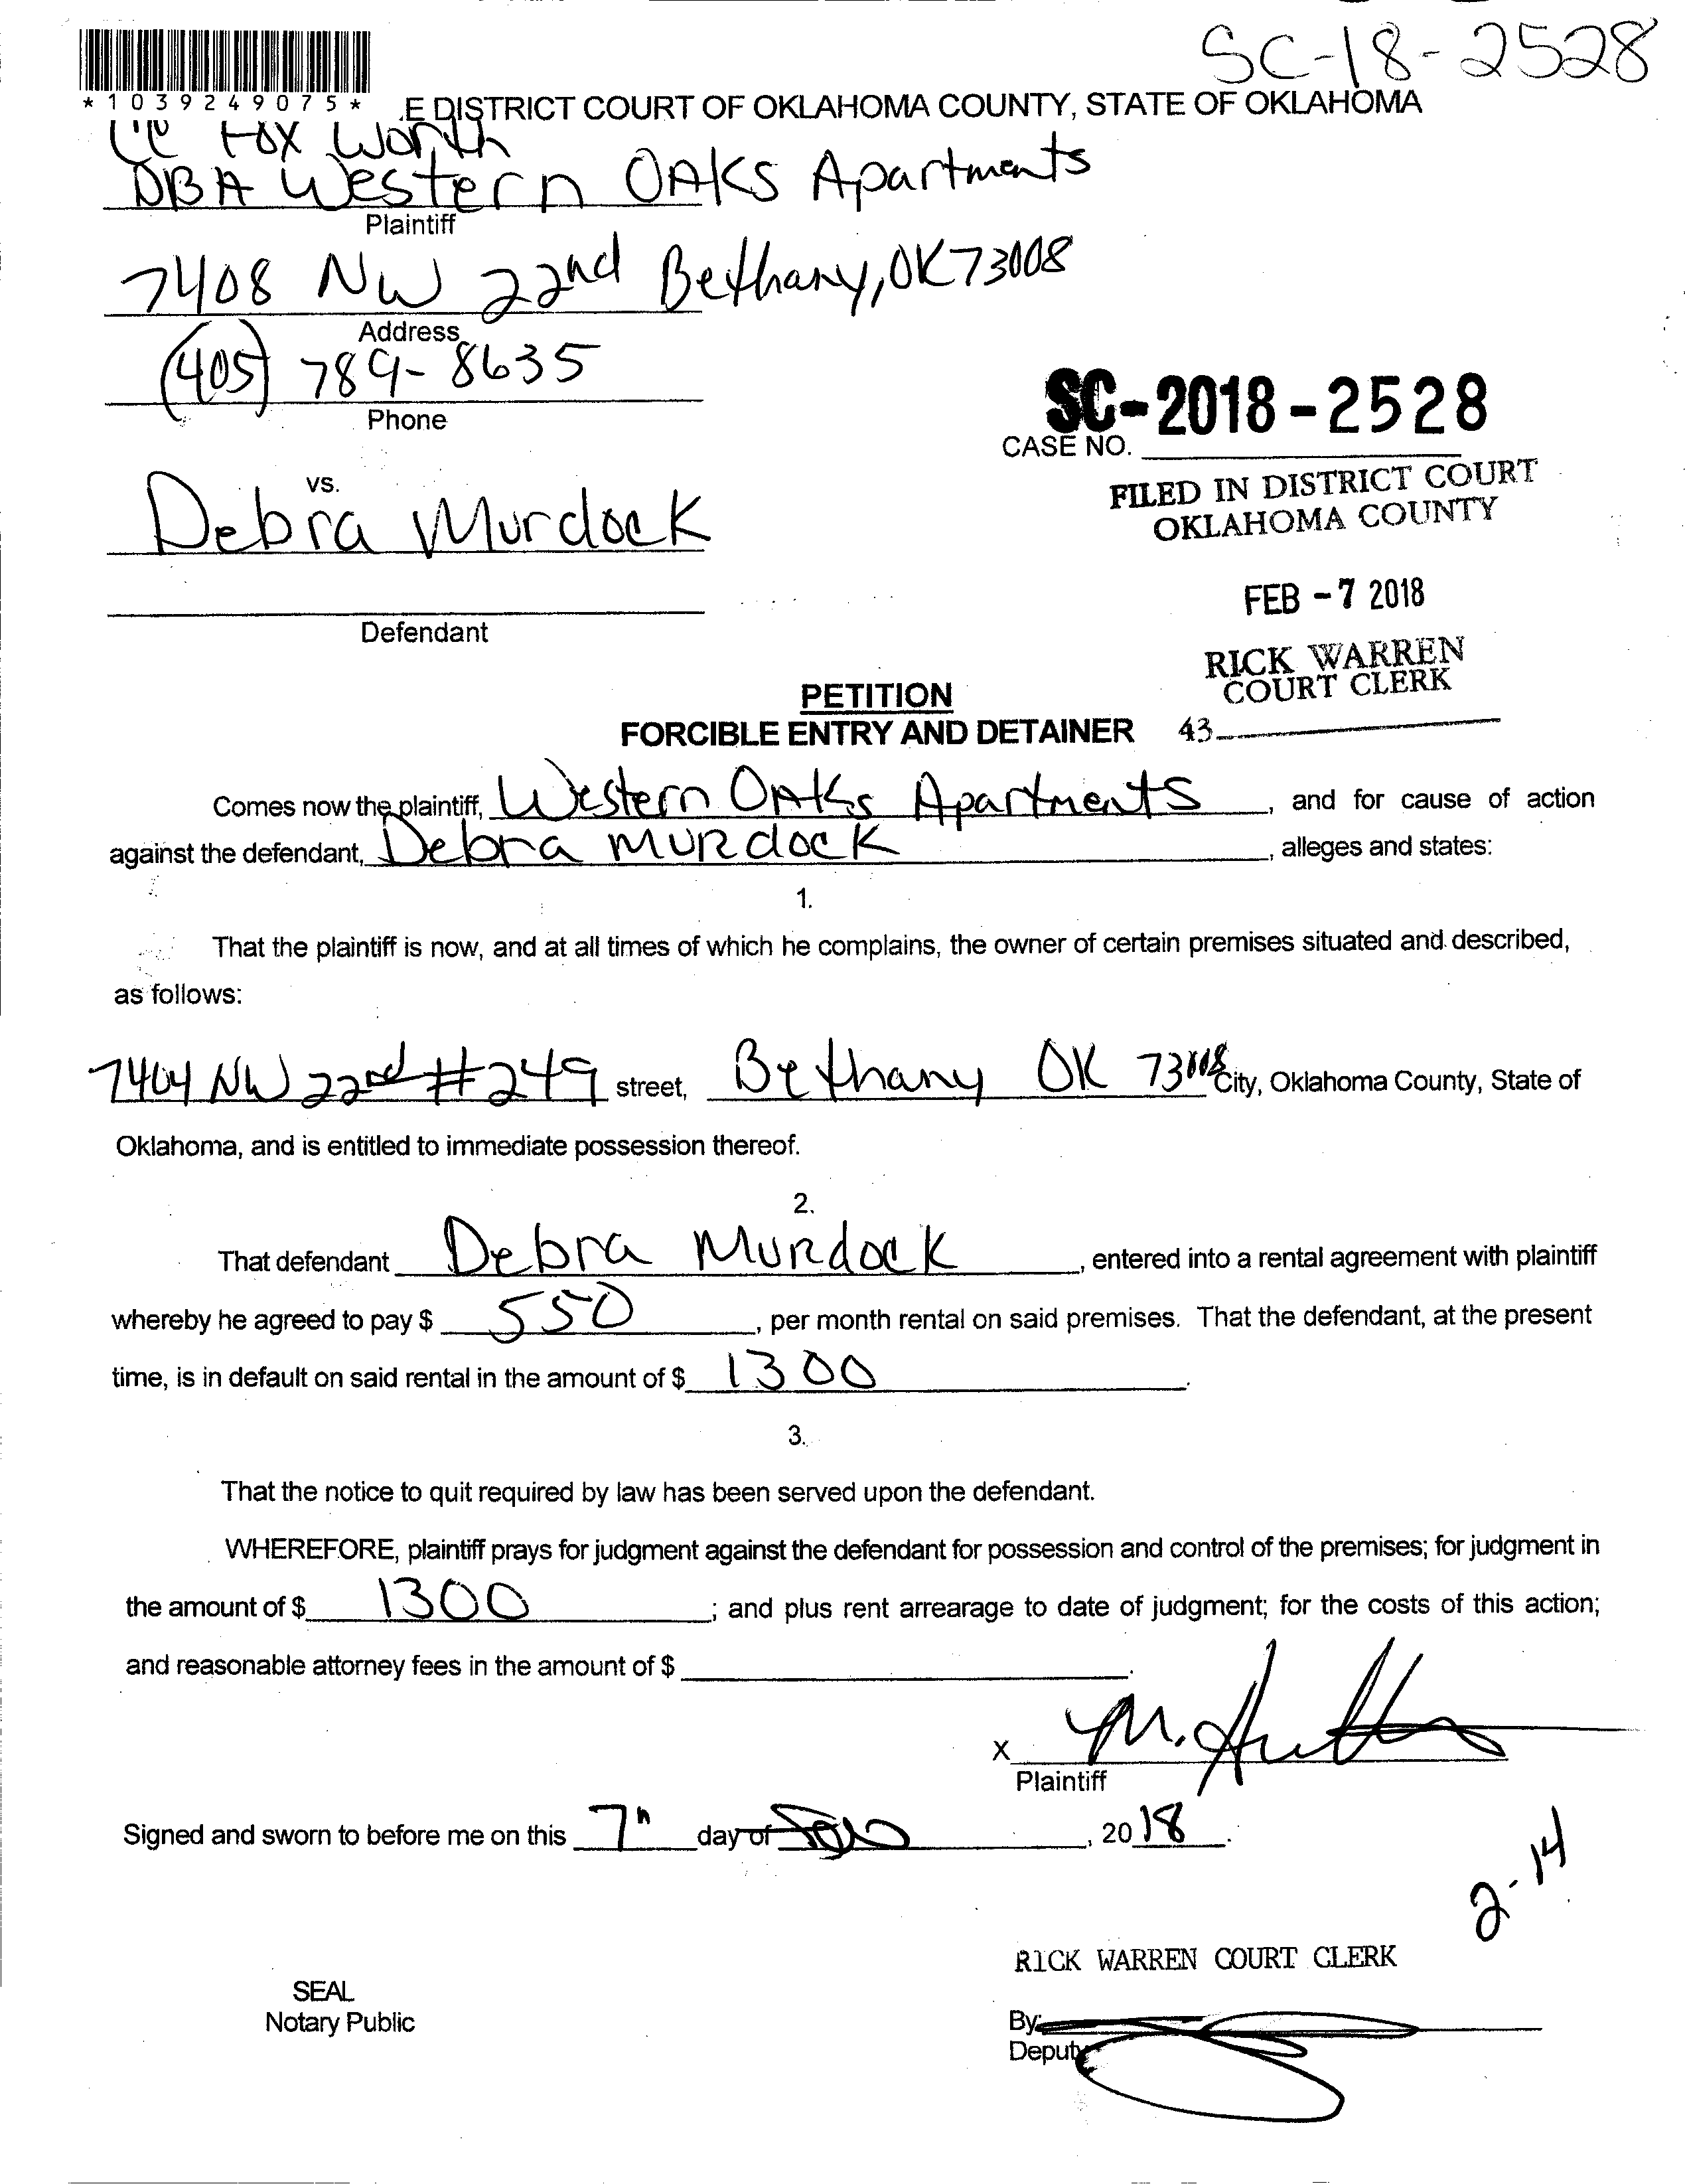 SC-18-2528
*1039249075*
E DISTRICT COURT OF OKLAHOMA COUNTY, STATE OF OKLAHOMA
Fox Worth
DBA Western OAKS Apartments
Plaintiff
7408 NW 22nd Bethany, OK 73008
Address
(405) 789-8635
Phone
SC-2018-2528
CASE NO.
vs.
FILED IN DISTRICT COURT
OKLAHOMA COUNTY
Debra Murdock
FEB -7 2018
Defendant
RICK WARREN
COURT CLERK
PETITION
FORCIBLE ENTRY AND DETAINER 43
Comes now the plaintiff, Western OAKs Apartments, and for cause of action
against the defendant, Debra MURdock, alleges and states:
1.
That the plaintiff is now, and at all times of which he complains, the owner of certain premises situated and described,
as follows:
7404 NW 22nd #249 street, Bethany OK 73008 City, Oklahoma County, State of
Oklahoma, and is entitled to immediate possession thereof.
2.
That defendant Debra MuRdock, entered into a rental agreement with plaintiff
whereby he agreed to pay $ 550, per month rental on said premises. That the defendant, at the present
time, is in default on said rental in the amount of $ 1300.
3.
That the notice to quit required by law has been served upon the defendant.
WHEREFORE, plaintiff prays for judgment against the defendant for possession and control of the premises; for judgment in
the amount of $ 1300; and plus rent arrearage to date of judgment; for the costs of this action;
and reasonable attorney fees in the amount of $.
X M.
Plaintiff
Signed and sworn to before me on this 7th day of, 2018.
2-14
RICK WARREN COURT CLERK
SEAL
Notary Public
By
Deputy